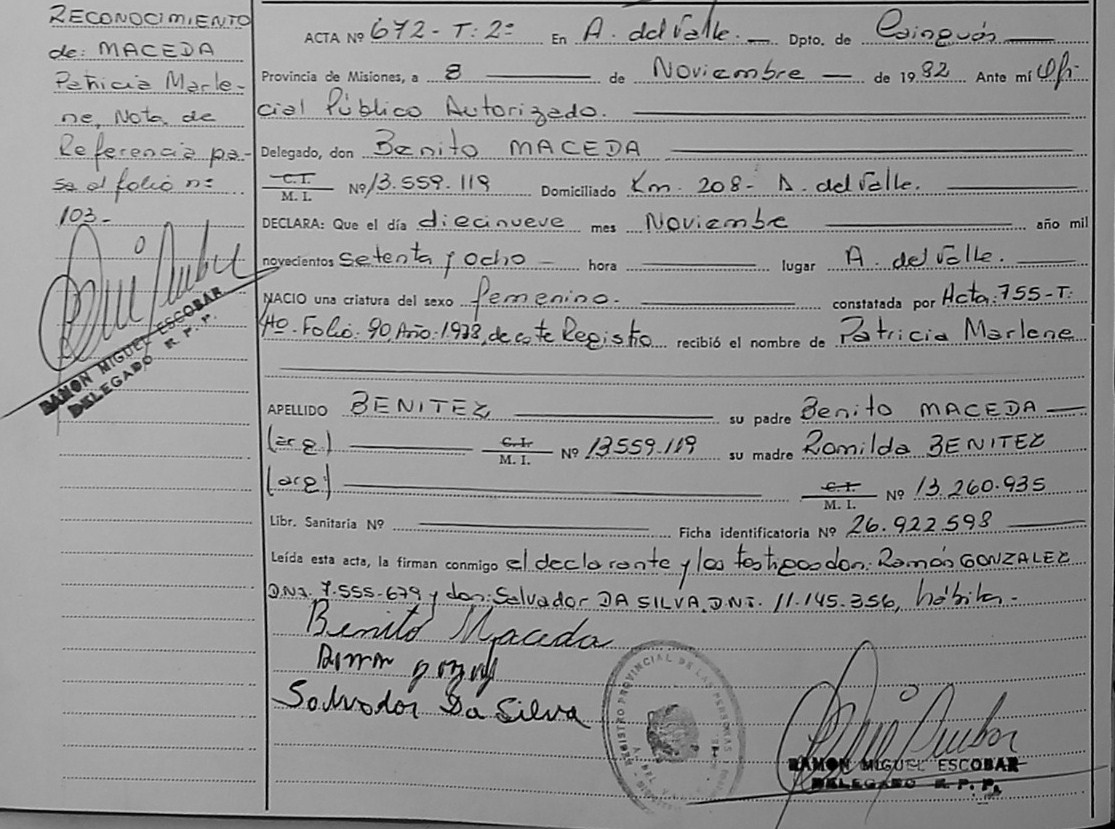 RECONOCIMIENTO
de: MACEDA
Patricia Marle-
ne, Nota de
Referencia pa-
sa al folio nº
103-
RAMON MIGUEL ESCOBAR
DELEGADO R. P. P.
ACTA Nº 672 - T: 2º En A. del Valle. Dpto. de Cainguás
Provincia de Misiones, a 8 de Noviembre de 1982 Ante mí Ofi-
cial Público Autorizado.
Delegado, don Benito MACEDA
C.I.
M. I. Nº 13.559.119 Domiciliado Km. 208- A. del Valle.
DECLARA: Que el día diecinueve mes Noviembre año mil
novecientos setenta y ocho hora lugar A. del Valle.
NACIO una criatura del sexo femenino. constatada por Acta: 755-T:
4º. Folio: 90, Año: 1978, de este Registro recibió el nombre de Patricia Marlene
APELLIDO BENITEZ su padre Benito MACEDA
(arg) C.I.
M. I. Nº 13559.119 su madre Romilda BENITEZ
(arg) C.I.
M. I. Nº 13.260.935
Libr. Sanitaria Nº Ficha identificatoria Nº 26.922.598
Leída esta acta, la firman conmigo el declarante y los testigos don: Ramón GONZALEZ
D.N.I. 7.555.679 y don: Salvador DA SILVA. D.N.I. 11.145.356, hábiles-
Benito Maceda
Salvador Da Silva
REGISTRO PROVINCIAL DE LAS PERSONAS
RAMON MIGUEL ESCOBAR
DELEGADO R. P. P.